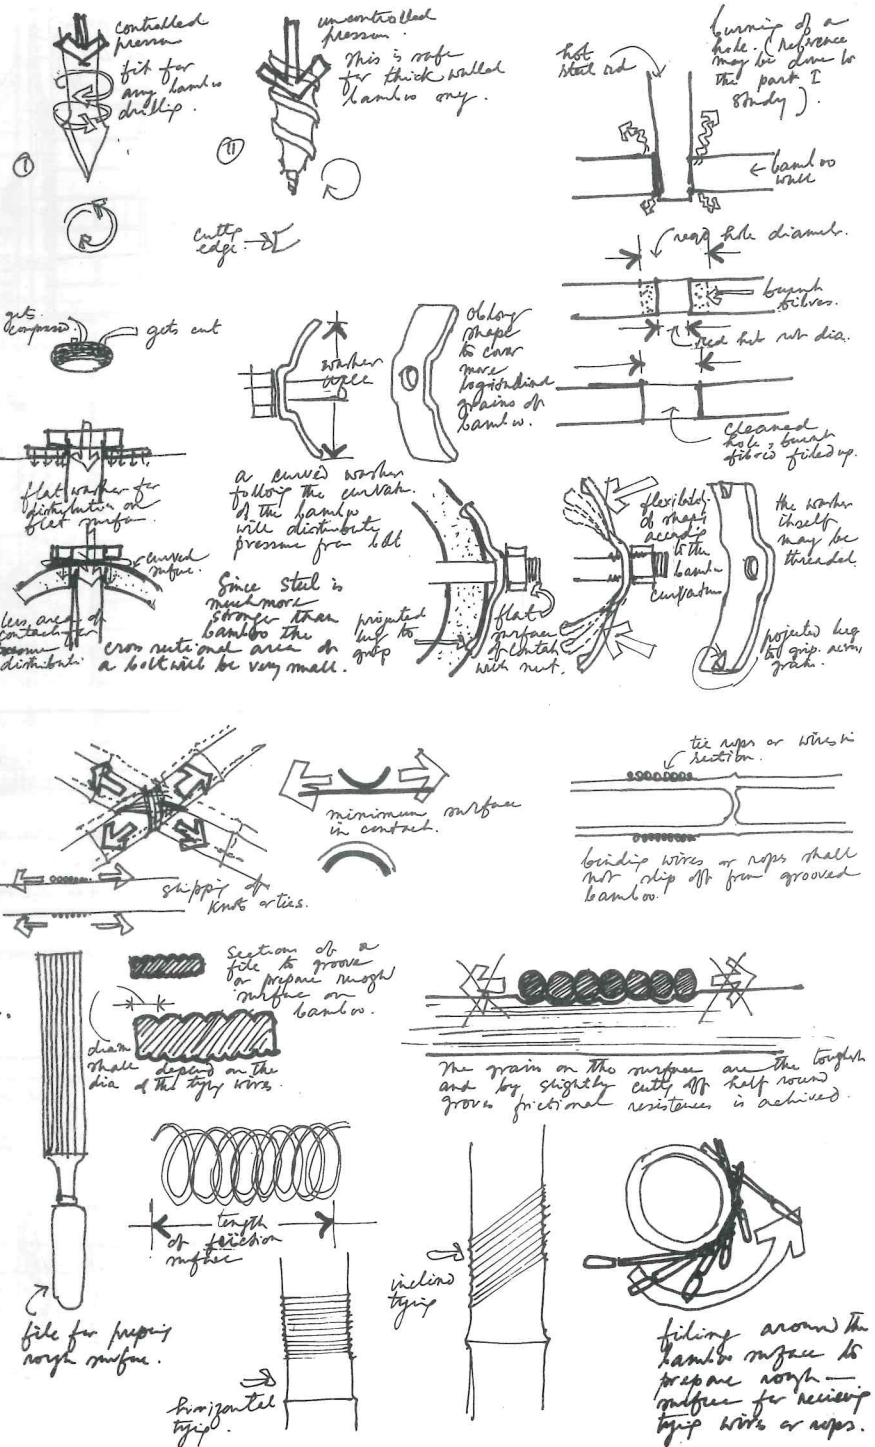 controlled
pressure
fit for
any bamboo
drilling
I
uncontrolled
pressure.
This is safe
for thick walled
bamboo only.
II
cutting
edge
hot
steel rod
burning of a
hole. (reference
may be done to
the part I
study).
bamboo
wall
reqd hole diameter.
burnt
fibres.
red hot rod dia.
cleaned
hole, burnt
fibre filed up.
gets
compressed
gets cut
washer
oblong
shape
to cover
more
grains of
bamboo.
flat washer for
distribution on
flat surface.
a curved washer
following the curvature
of the bamboo
will distribute
pressure from bolt
curved
surface.
less area of
contact for
distributi
Since steel is
much more
stronger than
bamboo the
cross sectional area of
a bolt will be very small.
projected
leg to
grip
flat
surface
of contact
with nut.
flexibility
of shape
to the
bamboo
curvature
the washer
itself
may be
threaded.
projected leg
to grip across
grain.
minimum surface
in contact.
slipping of
knot or ties.
tie ropes or wires in
section.
binding wires or ropes shall
not slip off from grooved
bamboo.
sections of a
file to groove
or prepare rough
surface on
bamboo.
diam
shall depend on the
dia of the tying wires.
The grain on the surface are the toughest
and by slightly cutting off half round
groves frictional resistences is achived
length
of friction
surface
file for preparing
rough surface.
horizontal
tying.
inclined
tying
filing around the
bamboo surface to
prepare rough —
surface for recieving
tying wires or ropes.